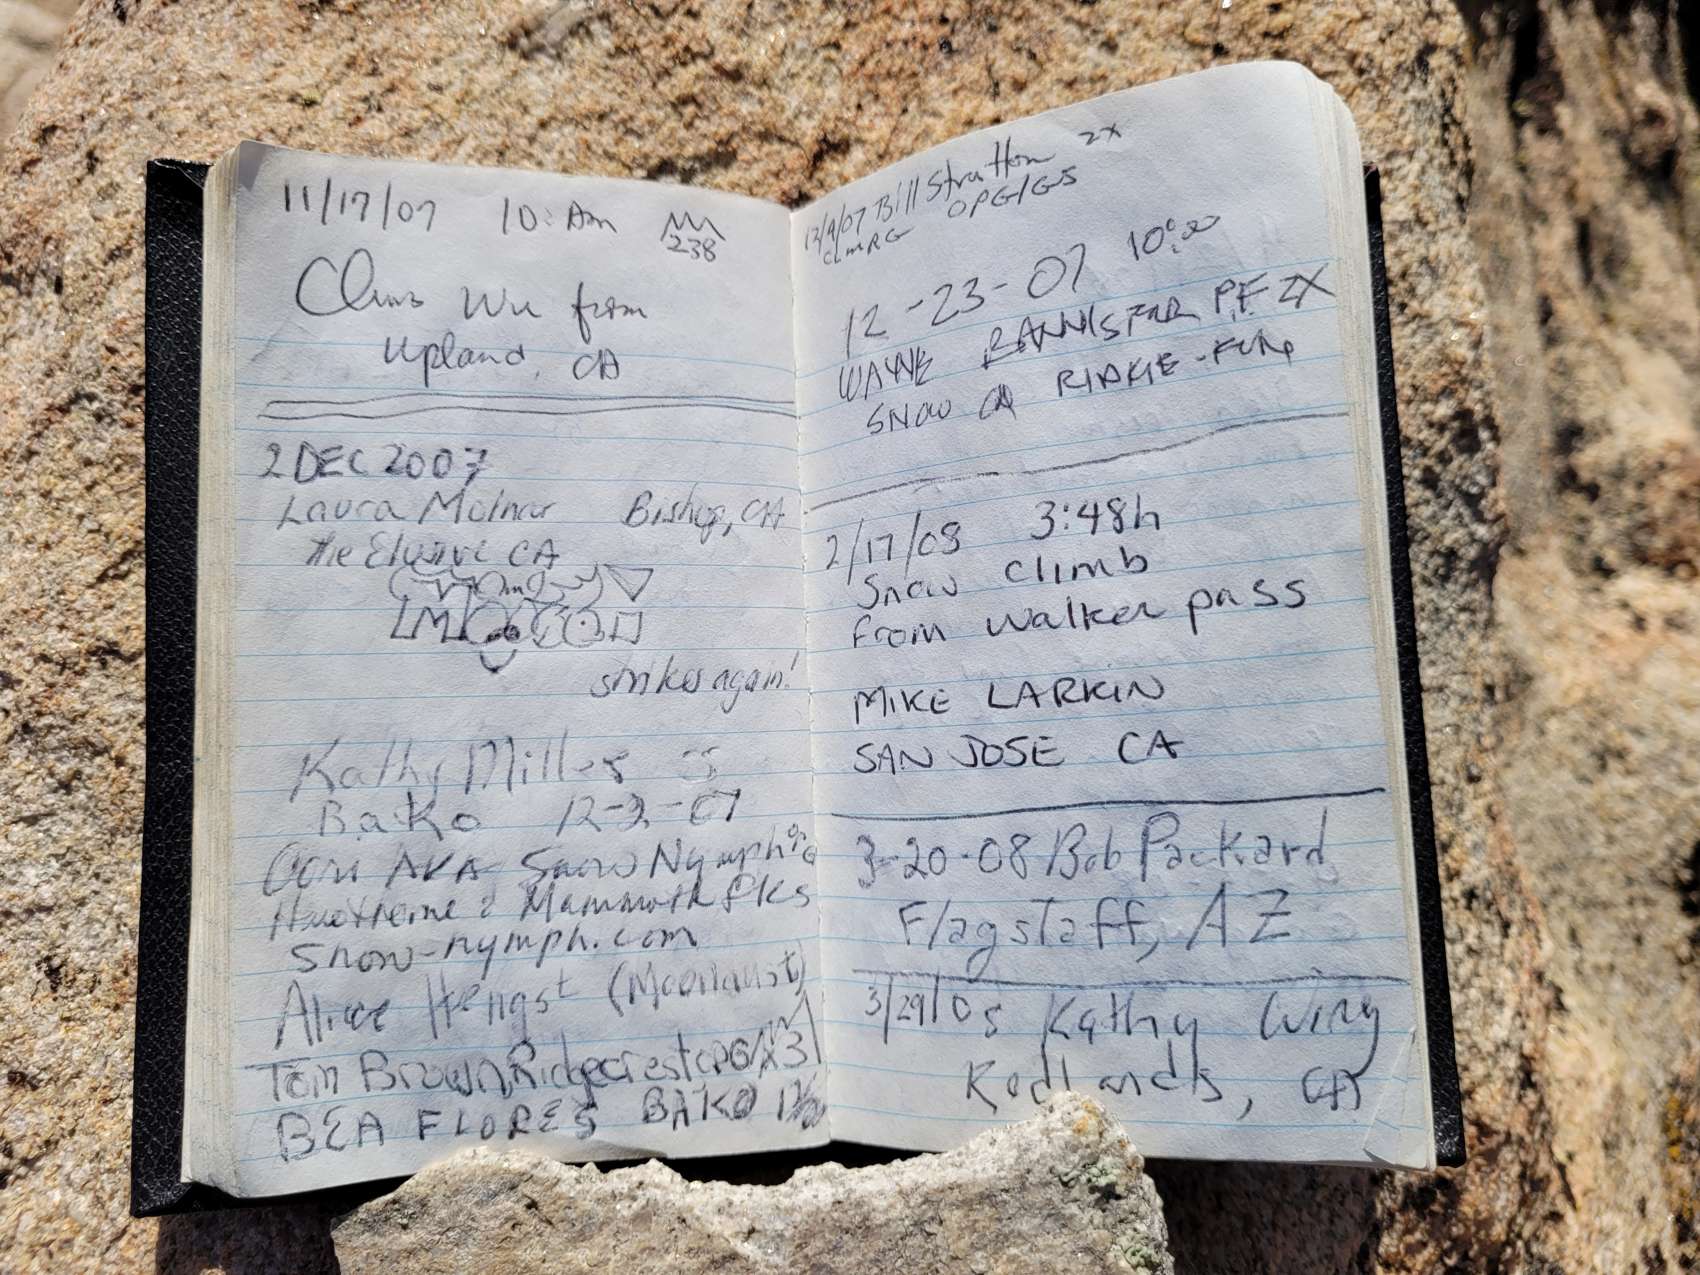 11/17/07 10: Am
238
Wu from
Upland, CA
2 DEC 2007
Laura Molnar Bishop, CA
the Elusive CA
strikes again!
Kathy Miller
Bako 12-2-07
AKA Snow Nymph
Hawthorne & Mammoth Lks
Snow-nymph.com
Alice Hengst
Tom Brown, Ridgecrest OPG/X3
BEA FLORES BAKO
12/9/07 Bill Stratton 2X
CLMRG OPG/GS
12-23-07 10:00
WAYNE BANNISTER P.F 2X
SNOW CA RIDGE-FUN
2/17/08 3:48h
Snow climb
from walker pass
MIKE LARKIN
SAN JOSE CA
3-20-08 Bob Packard
Flagstaff, AZ
3/29/08 Kathy Wing
Redlands, CA